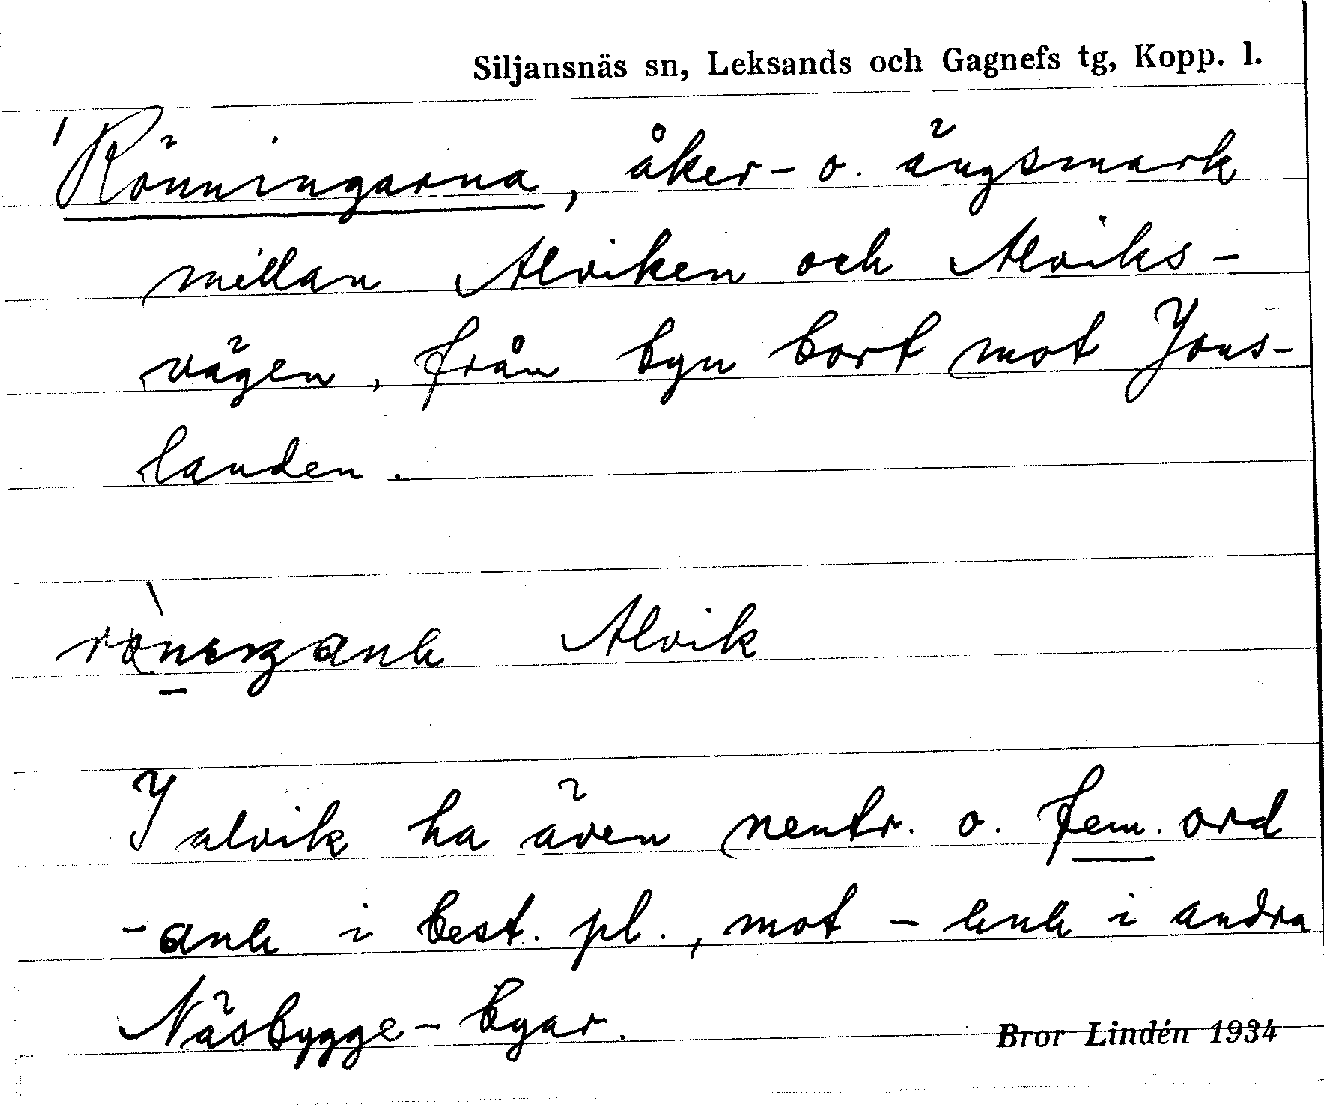 Siljansnäs sn, Leksands och Gagnefs tg, Kopp. l.
Rönningarna, åker- o. ängsmark
mellan Alviken och Alviks-
vägen, från byn bort mot Jons-
landen.
Alvik
I alvik ha även neutr. o. fem. ord
i best. pl., mot i andra
Näsbygge-byar.
Bror Lindén 1934